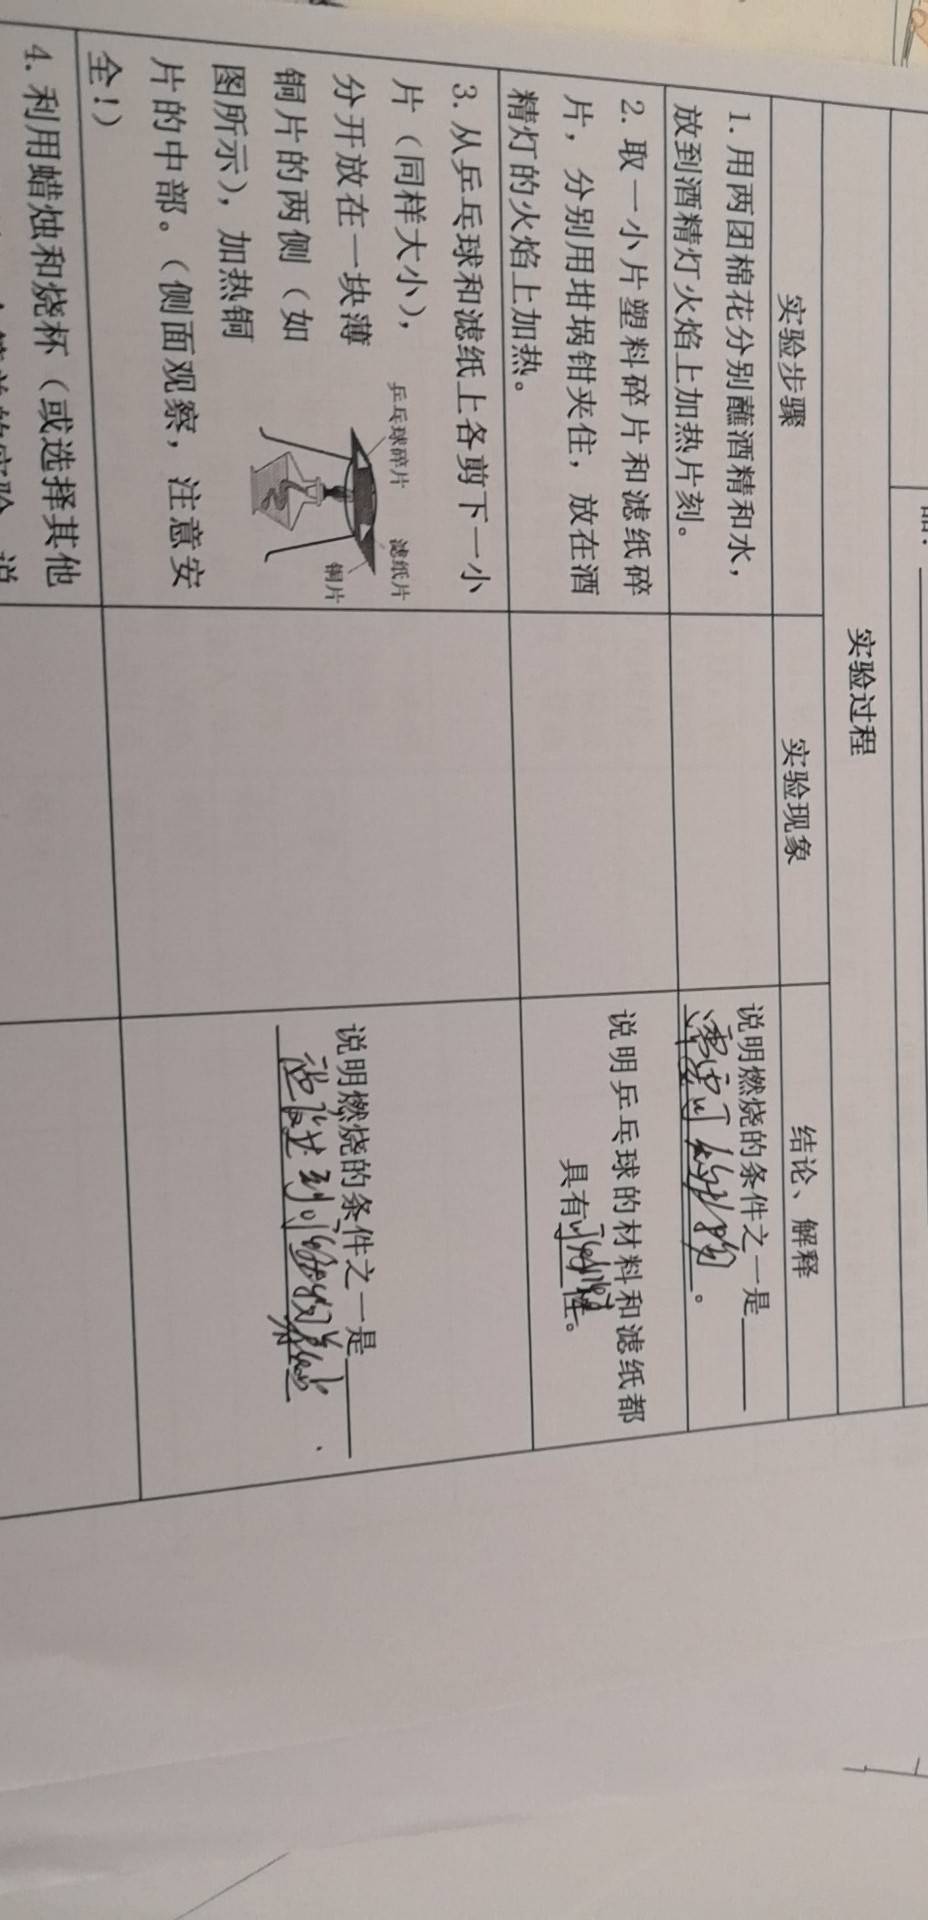 实验过程
实验步骤
实验现象
结论、解释
1. 用两团棉花分别蘸酒精和水，
放到酒精灯火焰上加热片刻。
说明燃烧的条件之一是
需要可燃物。
2. 取一小片塑料碎片和滤纸碎
片，分别用坩埚钳夹住，放在酒
精灯的火焰上加热。
说明乒乓球的材料和滤纸都
具有可燃性。
3. 从乒乓球和滤纸上各剪下一小
片（同样大小），
分开放在一块薄
铜片的两侧（如
图所示），加热铜
片的中部。（侧面观察，注意安
全！）
乒乓球碎片
滤纸片
铜片
说明燃烧的条件之一是
温度达到可燃物着火
4. 利用蜡烛和烧杯（或选择其他